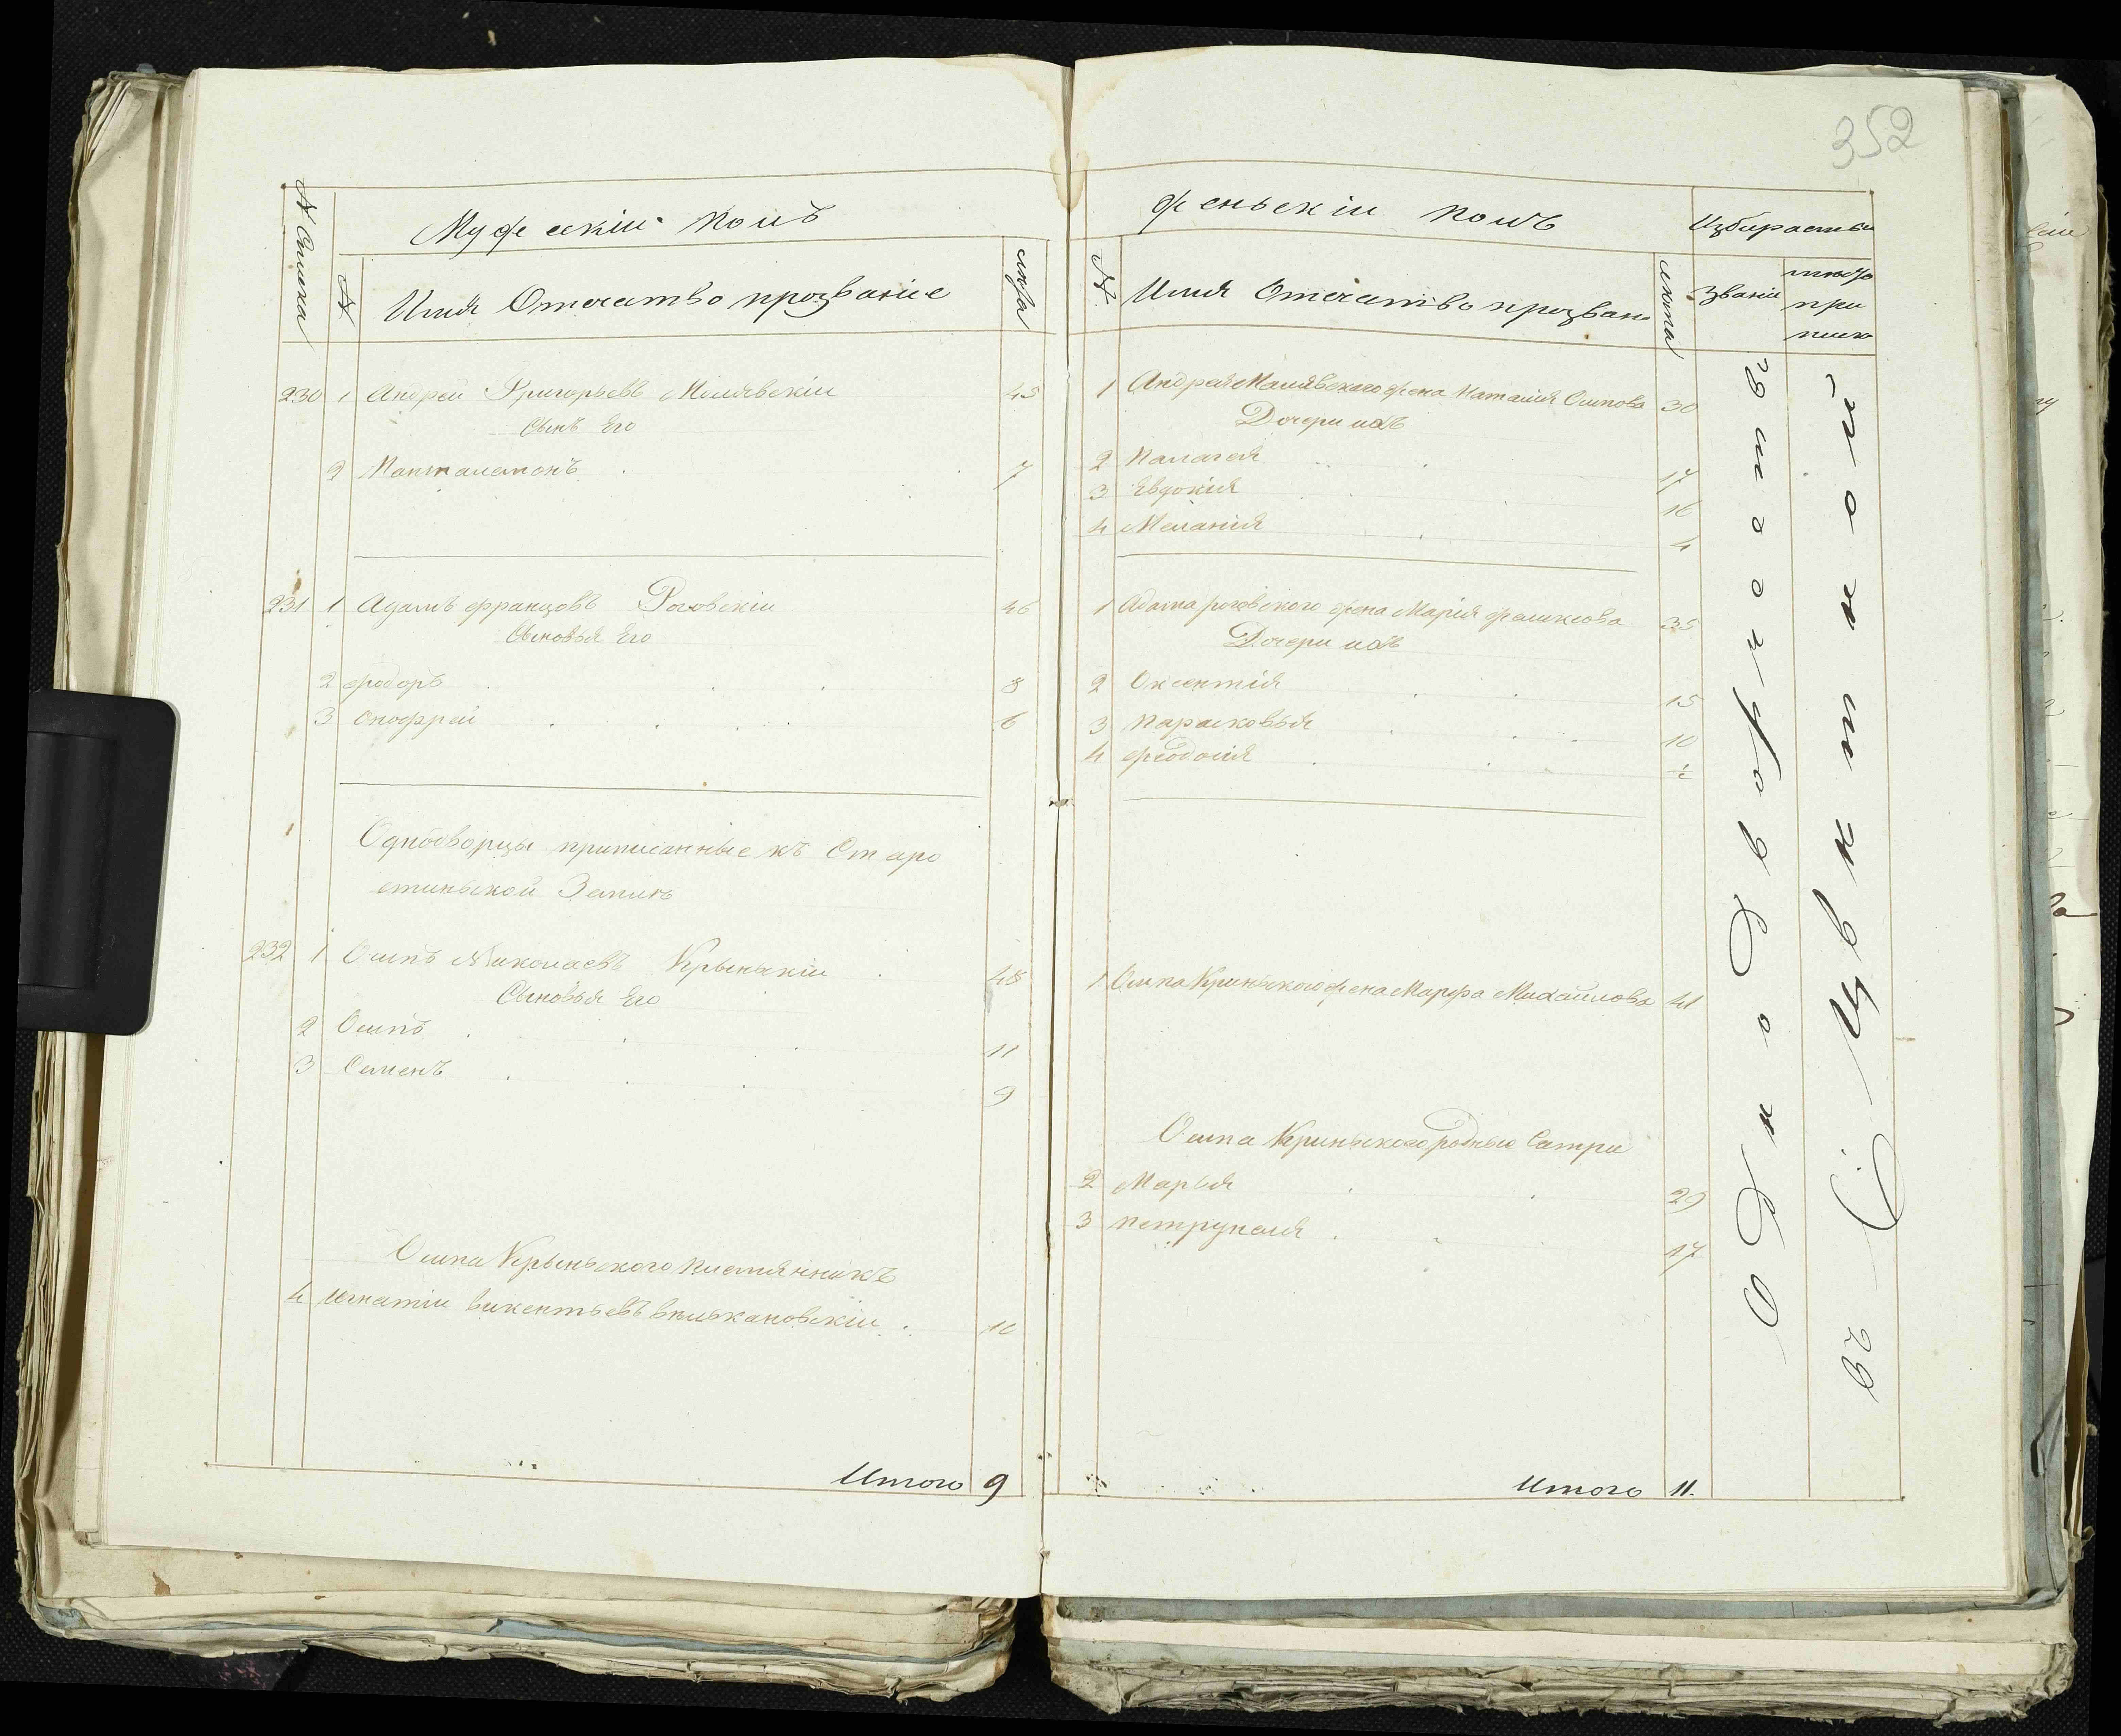 352
Мужескій полъ
№ Списка
№
Имя Отчество прозваніе
лѣта
230 1 Андрей Григорьевъ Малявскій 45
Сынъ Его
2 Панталемонъ 7
231 1 Адамъ францовъ Роговскій 46
Сыновья Его
2 фодоръ 8
3 Онофрей 6
Однодворцы приписанные къ Старо
стинской Землѣ
232 1 Осипъ Николаевъ Крынскіи 48
Сыновья Его
2 Осипъ 11
3 Семенъ 9
Осипа Крынского племянникъ
4 игнатіи викентьевъ
Итого 9
женьскіи полъ
Избираемый
№
Имя Отчество прозван
лѣта
Званіи
мѣсто
при
писк
1 Андрея Малявского жена Наталія Осипова 30
Дочери ихъ
2 Палагея 17
3 Евдокія 16
4 Меланія 4
1 Адама роговского жена Марія 35
Дочери ихъ
2 Оксентія 15
3 Парасковья 10
4 феодосія
1 Осипа Крыньского жена Марфа Михайлова 41
Осипа Криньского родные Сестри
2 Марья 29
3 петрунеля 17
Итого 11.
Однодворческое